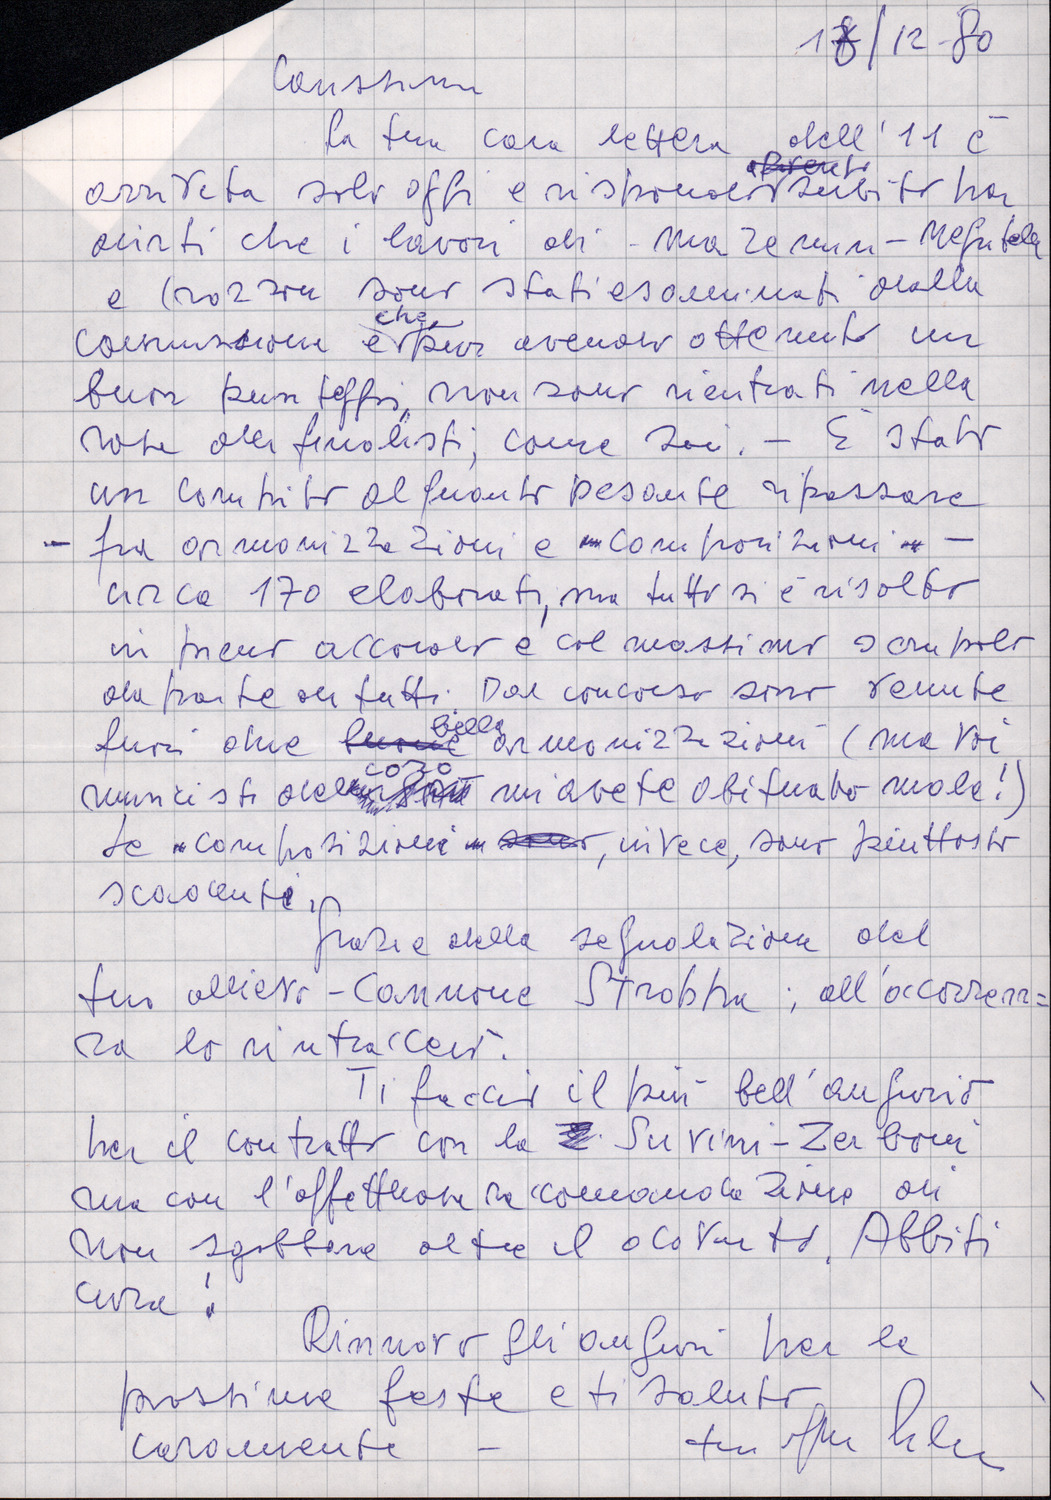 18/12-80
Carissimo
la tua cara lettera dell'11 è
arrivata solo oggi e rispondo subito per
dirti che i lavori di - Mazemin - Negutela
e Crozzoli sono stati esaminati dalla
commissione e che, pur avendo ottenuto un
buon punteggio, non sono rientrati nella
rosa dei finalisti, come sai. - È stato
un compito alquanto pesante ripassare
- fra armonizzazioni e "composizioni" -
circa 170 elaborati, ma tutto si è risolto
in pieno accordo e col massimo scrupolo
da parte di tutti. Dal concorso sono venute
fuori due belle armonizzazioni (ma voi
musicisti del coro mi avete abituato male!)
le "composizioni", invece, sono piuttosto
scadenti.
Grazie della segnalazione del
tuo allievo - Cannone Stroppa; all'occorren=
za lo rintraccerò.
Ti faccio il più bell'augurio
per il contratto con la Suvini-Zerboni
ma con l'affettuosa raccomandazione di
non sgobbare oltre il dovuto. Abbiti
cura!
Rinnovo gli auguri per le
prossime feste e ti saluto
caramente - tuo